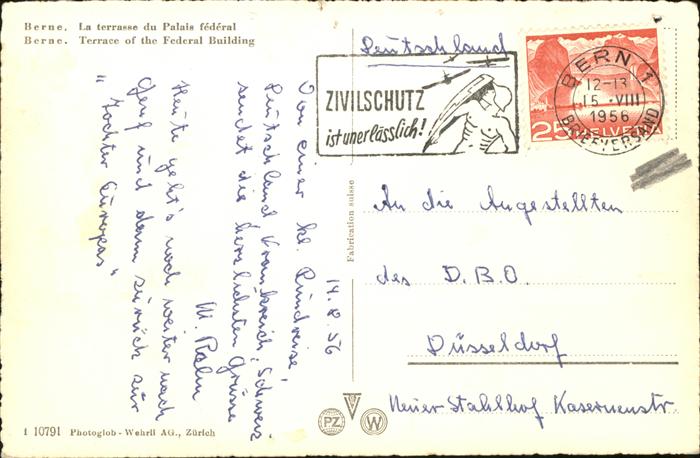 Berne. La terrasse du Palais fédéral
Berne. Terrace of the Federal Building
Deutschland
ZIVILSCHUTZ
ist unerlässlich!
BERN 1
12-13
15.-VIII
1956
BRIEFVERSAND
25 HELVETIA
14.8.56
Von einer kl. Rundreise,
Deutschland Frankreich, Schweiz
sendet die herzlichsten Grüsse
M. Rahn
Heute geht's noch weiter nach
Genf und dann zurück zur
"Tochter Europas"
An die Angestellten
des D.B.O.
Düsseldorf
Neuer Stahlhof Kasernenstr.
Fabrication suisse
PZ
W
1 10791 Photoglob-Wehrli AG., Zürich